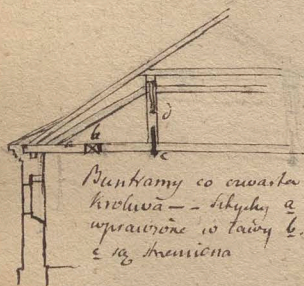 b
a
d
c
Buntramy co czwarta
krokwa — sztychy a
wprawione w ławy b.
c są strzemiona